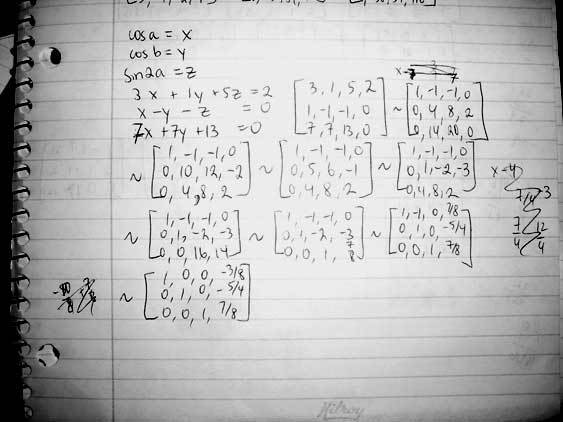 cos a = x
cos b = y
sin 2a = z
3x + 1y + 5z = 2 [3, 1, 5, 2
x - y - z = 0 1, -1, -1, 0
7x + 7y + 13 = 0 7, 7, 13, 0] ~ [1, -1, -1, 0
0, 4, 8, 2
0, 14, 20, 0]
~ [1, -1, -1, 0
0, 10, 12, -2
0, 4, 8, 2]
~ [1, -1, -1, 0
0, 5, 6, -1
0, 4, 8, 2]
~ [1, -1, -1, 0
0, 1, -2, -3
0, 4, 8, 2]
~ [1, -1, -1, 0
0, 1, -2, -3
0, 0, 16, 14]
~ [1, -1, -1, 0
0, 1, -2, -3
0, 0, 1, 7/8]
~ [1, -1, 0, 7/8
0, 1, 0, -5/4
0, 0, 1, 7/8]
~ [1, 0, 0, -3/8
0, 1, 0, -5/4
0, 0, 1, 7/8]
Hilroy